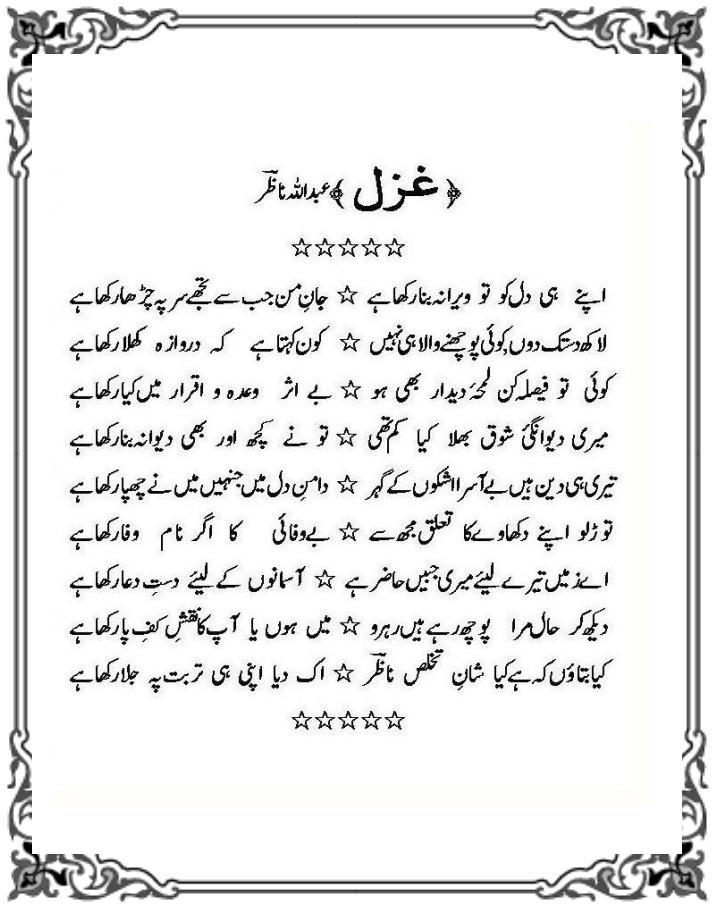 ﴿غزل﴾ عبداللہ ناظرؔ
☆☆☆☆☆
اپنے ہی دل کو تو ویرانہ بنا رکھا ہے ☆ جانِ من جب سے تجھے سر پہ چڑھا رکھا ہے
لاکھ دستک دوں، کوئی پوچھنے والا ہی نہیں ☆ کون کہتا ہے کہ دروازہ کھلا رکھا ہے
کوئی تو فیصلہ کن لمحۂ دیدار بھی ہو ☆ بے اثر وعدہ و اقرار میں کیا رکھا ہے
میری دیوانگئ شوق بھلا کیا کم تھی ☆ تو نے کچھ اور بھی دیوانہ بنا رکھا ہے
تیری ہی دین ہیں بے آسرا اشکوں کے گہر ☆ دامنِ دل میں جنہیں میں نے چھپا رکھا ہے
توڑ لو اپنے دکھاوے کا تعلق مجھ سے ☆ بے وفائی کا اگر نام وفا رکھا ہے
اے زمیں تیرے لیئے میری جبیں حاضر ہے ☆ آسمانوں کے لیئے دستِ دعا رکھا ہے
دیکھ کر حال مرا پوچھ رہے ہیں رہرو ☆ میں ہوں یا آپ کا نقشِ کفِ پا رکھا ہے
کیا بتاؤں کہ ہے کیا شانِ تخلص ناظرؔ ☆ اک دیا اپنی ہی تربت پہ جلا رکھا ہے
☆☆☆☆☆